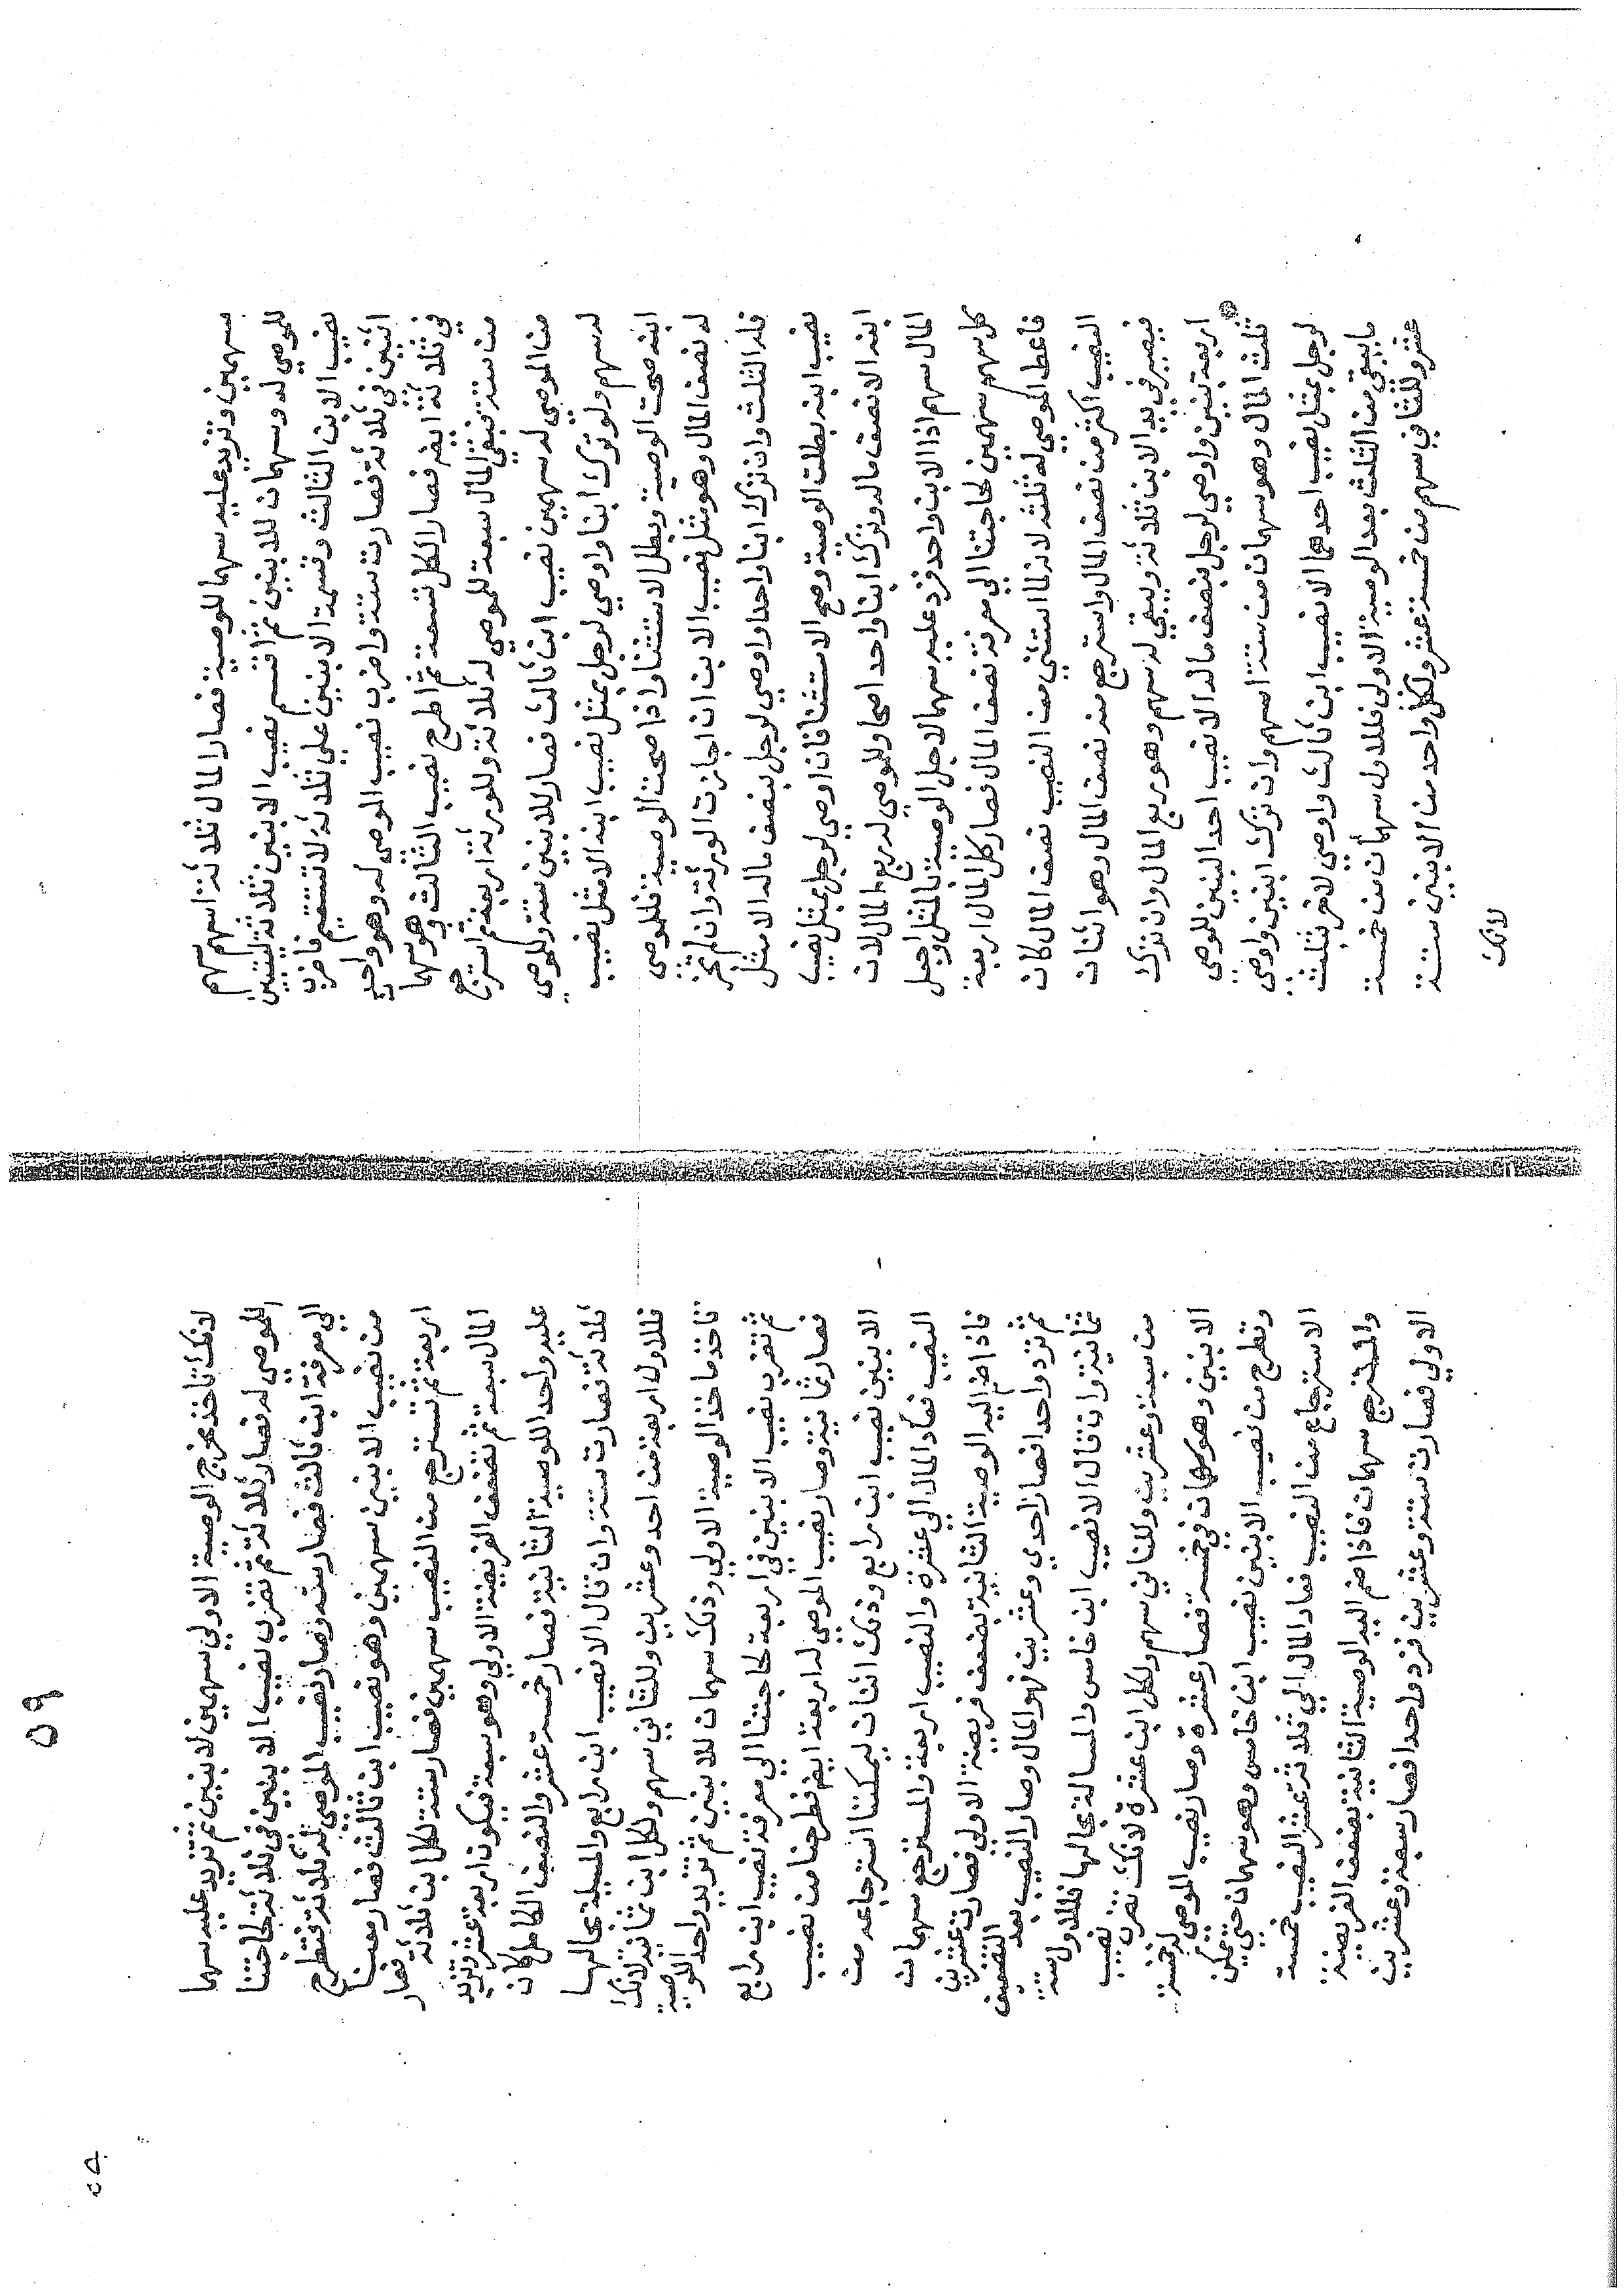 سهمين وتزيد عليه سهما للوصية فصار المال ثلاثة اسهم سهم
للموصي له وسهمان للابنين ثم اقسم نصيب الابنين ثلاثة ليتبين
نصيب الابن الثالث وقسمة الابنين علي ثلاثة لا تستقيم فاضرب
اثنين في ثلاثة فصارت ستة واضرب نصيب الموصي له وهو واحد
في ثلاثة ايضا فصار الكل تسعة ثم اطرح نصيب الثالث وهو سهما
من ستة فبقي المال سبعة للموصي له ثلاثة وللورثة اربعة ثم استرجع
من الموصي له سهمين نصيب ابن ثالث فصار للابنين ستة وللموصي
له سهم ولو ترك ابنا واوصي لرجل بمثل نصيب ابنه الا مثل نصيب
ابنه صحت الوصية وبطل الاستثنا واذا صحت الوصية فللموصي
له نصف المال وهو مثل نصيب الابن ان اجازت الورثة وان لم تجز
فله الثلث وان ترك ابنا واحدا واوصي لرجل بنصف ماله الا مثل
نصيب ابنه بطلت الوصية وصح الاستثنا فان اوصي لرجل بمثل نصيب
ابنه الا نصف ماله وترك ابنا واحدا صحا وللموصي له ربع المال لان
المال سهم اذا الابن واحد فزد عليه سهما لاجل الوصية بالمثل واجعل
كل سهم سهمين لحاجتنا الي معرفة نصف المال فصار كل المال اربعة
فاعط الموصي له ثلثه لانه لما استثني من النصيب نصف المال كان
النصيب اكثر من نصف المال واسترجع منه نصف المال وهو اثنان
فيصير في يد الابن ثلاثة ويبقي له سهم وهو ربع المال وان ترك
اربعة بنين واوصي لرجل بنصف ماله الا نصيب احد البنين للموصي
ثلث المال وهو سهمان من ستة اسهم وان ترك ابنين واوصي
لرجل بمثل نصيب احدهما الا نصيب ابن ثالث واوصي لاخر بثلث
ما يبقي من الثلث بعد الوصية الاولي فللاول سهمان من خمسة
عشر وللثاني سهم من خمسة عشر ولكل واحد من الابنين ستة
لانك
٥٩
لانك تاخذ مخرج الوصية الاولي سهمين لابنين ثم تزيد عليه سهما
للموصي له فصار ثلاثة ثم تضرب نصيب الابنين في ثلاثة لحاجتنا
الي معرفة ابن ثالث فصار ستة وصار نصيب الموصي له ثلاثة فتطرح
من نصيب الابنين سهمين وهو نصيب ابن ثالث فصار معنا
اربعة ثم تسترجع من النصيب سهمين فصار ستة لكل ابن ثلاثة فصار
المال سبعة ثم تضعف الفريضة الاولي وهو سبعة فيكون اربعة عشر وتزيد
عليه واحد للوصية الثانية فصار خمسة عشر والنصيب الكامل كان
ثلاثة فصارت ستة وان قال الا نصيب ابن رابع والمسيلة بحالها
فللاول اربعة من احد وعشرين وللثاني سهم ولكل ابن ثمانية لانك
تاخذ ماخذ الوصية الاولي وذلك سهمان للابنين ثم تزيد واحد للوصية
ثم تضرب نصيب الابنين في اربعة لحاجتنا الي معرفة نصيب ابن رابع
فصار ثمانية وصار نصيب الموصي له اربعة ايضا فطرحنا من نصيب
الابنين نصيب ابن رابع وذلك اثنان ليمكننا استرجاعه من
النصيب فعاد المال الي عشرة والنصيب اربعة والمسترجع سهمان
فاذا ضم اليه الوصية الثانية بضعف فريضة الاولي فصارت عشرين
ثم تزد واحدا فصار احدي وعشرين فهو المال وصار النصيب بعد التضعيف
ثمانية وان قال الا نصيب ابن خامس والمسالة بحالها فللاول ستة
من سبعة وعشرين وللثاني سهم ولكل ابن عشرة لانك تضرب نصيب
الابنين وهو سهمان في خمسة فصار عشرة وصار نصيب الموصي له خمسة
وتطرح من نصيب الابنين نصيب ابن خامس وهو سهمان حتي يمكن
الاسترجاع من النصيب فعاد المال الي ثلاثة عشر النصيب خمسة
والمسترجع سهمان فاذا ضم اليه الوصية الثانية بضعف الفريضة
الاولي فصارت ستة وعشرين فزد واحدا فصار سبعة وعشرين